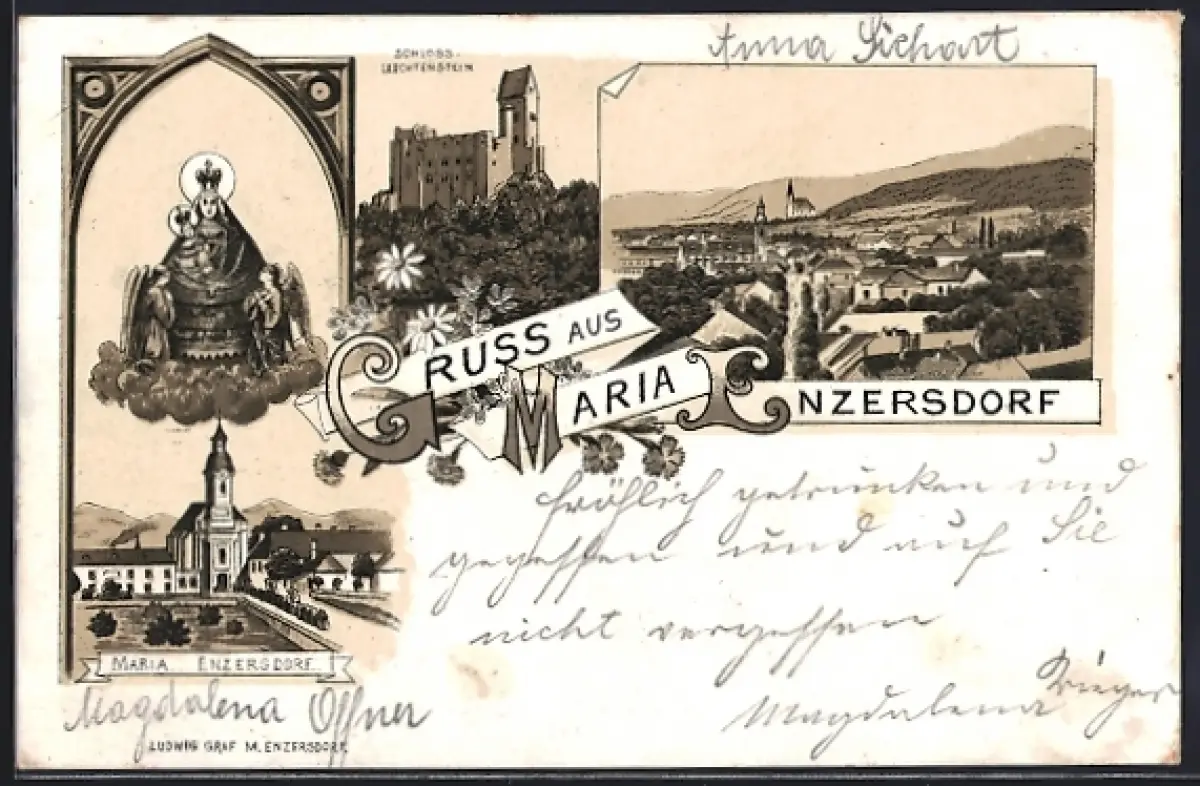 Anna Sichart
SCHLOSS
LIECHTENSTEIN
GRUSS AUS
MARIA ENZERSDORF
fröhlich getrunken und
gegessen und auf Sie
nicht vergessen
Magdalena Krieger
MARIA ENZERSDORF.
Magdalena Offner
LUDWIG GRAF M. ENZERSDORF.